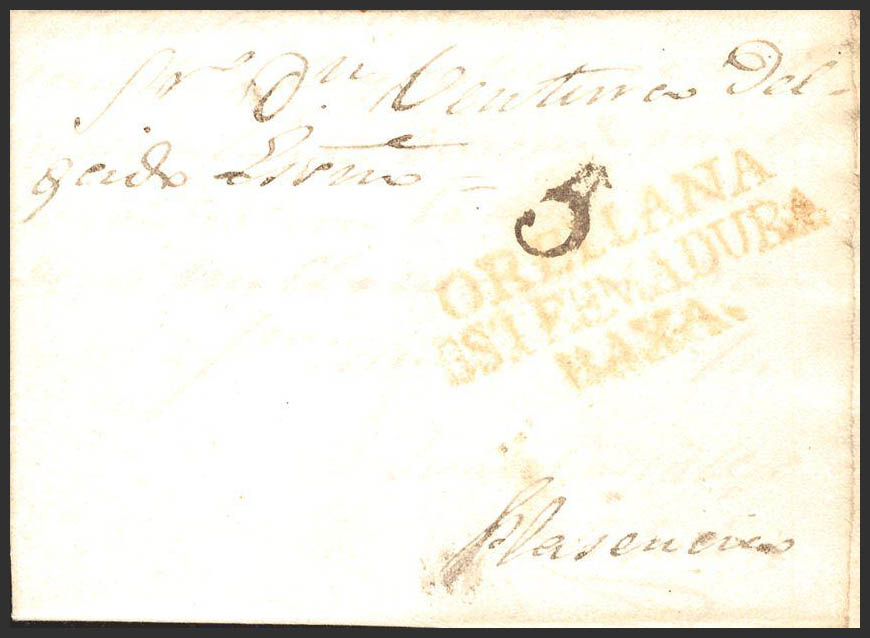 Sr. Dn. Ventura Del-
gado Esno =
5
ORELLANA
ESTREMADURA
BAXA.
Plasencia